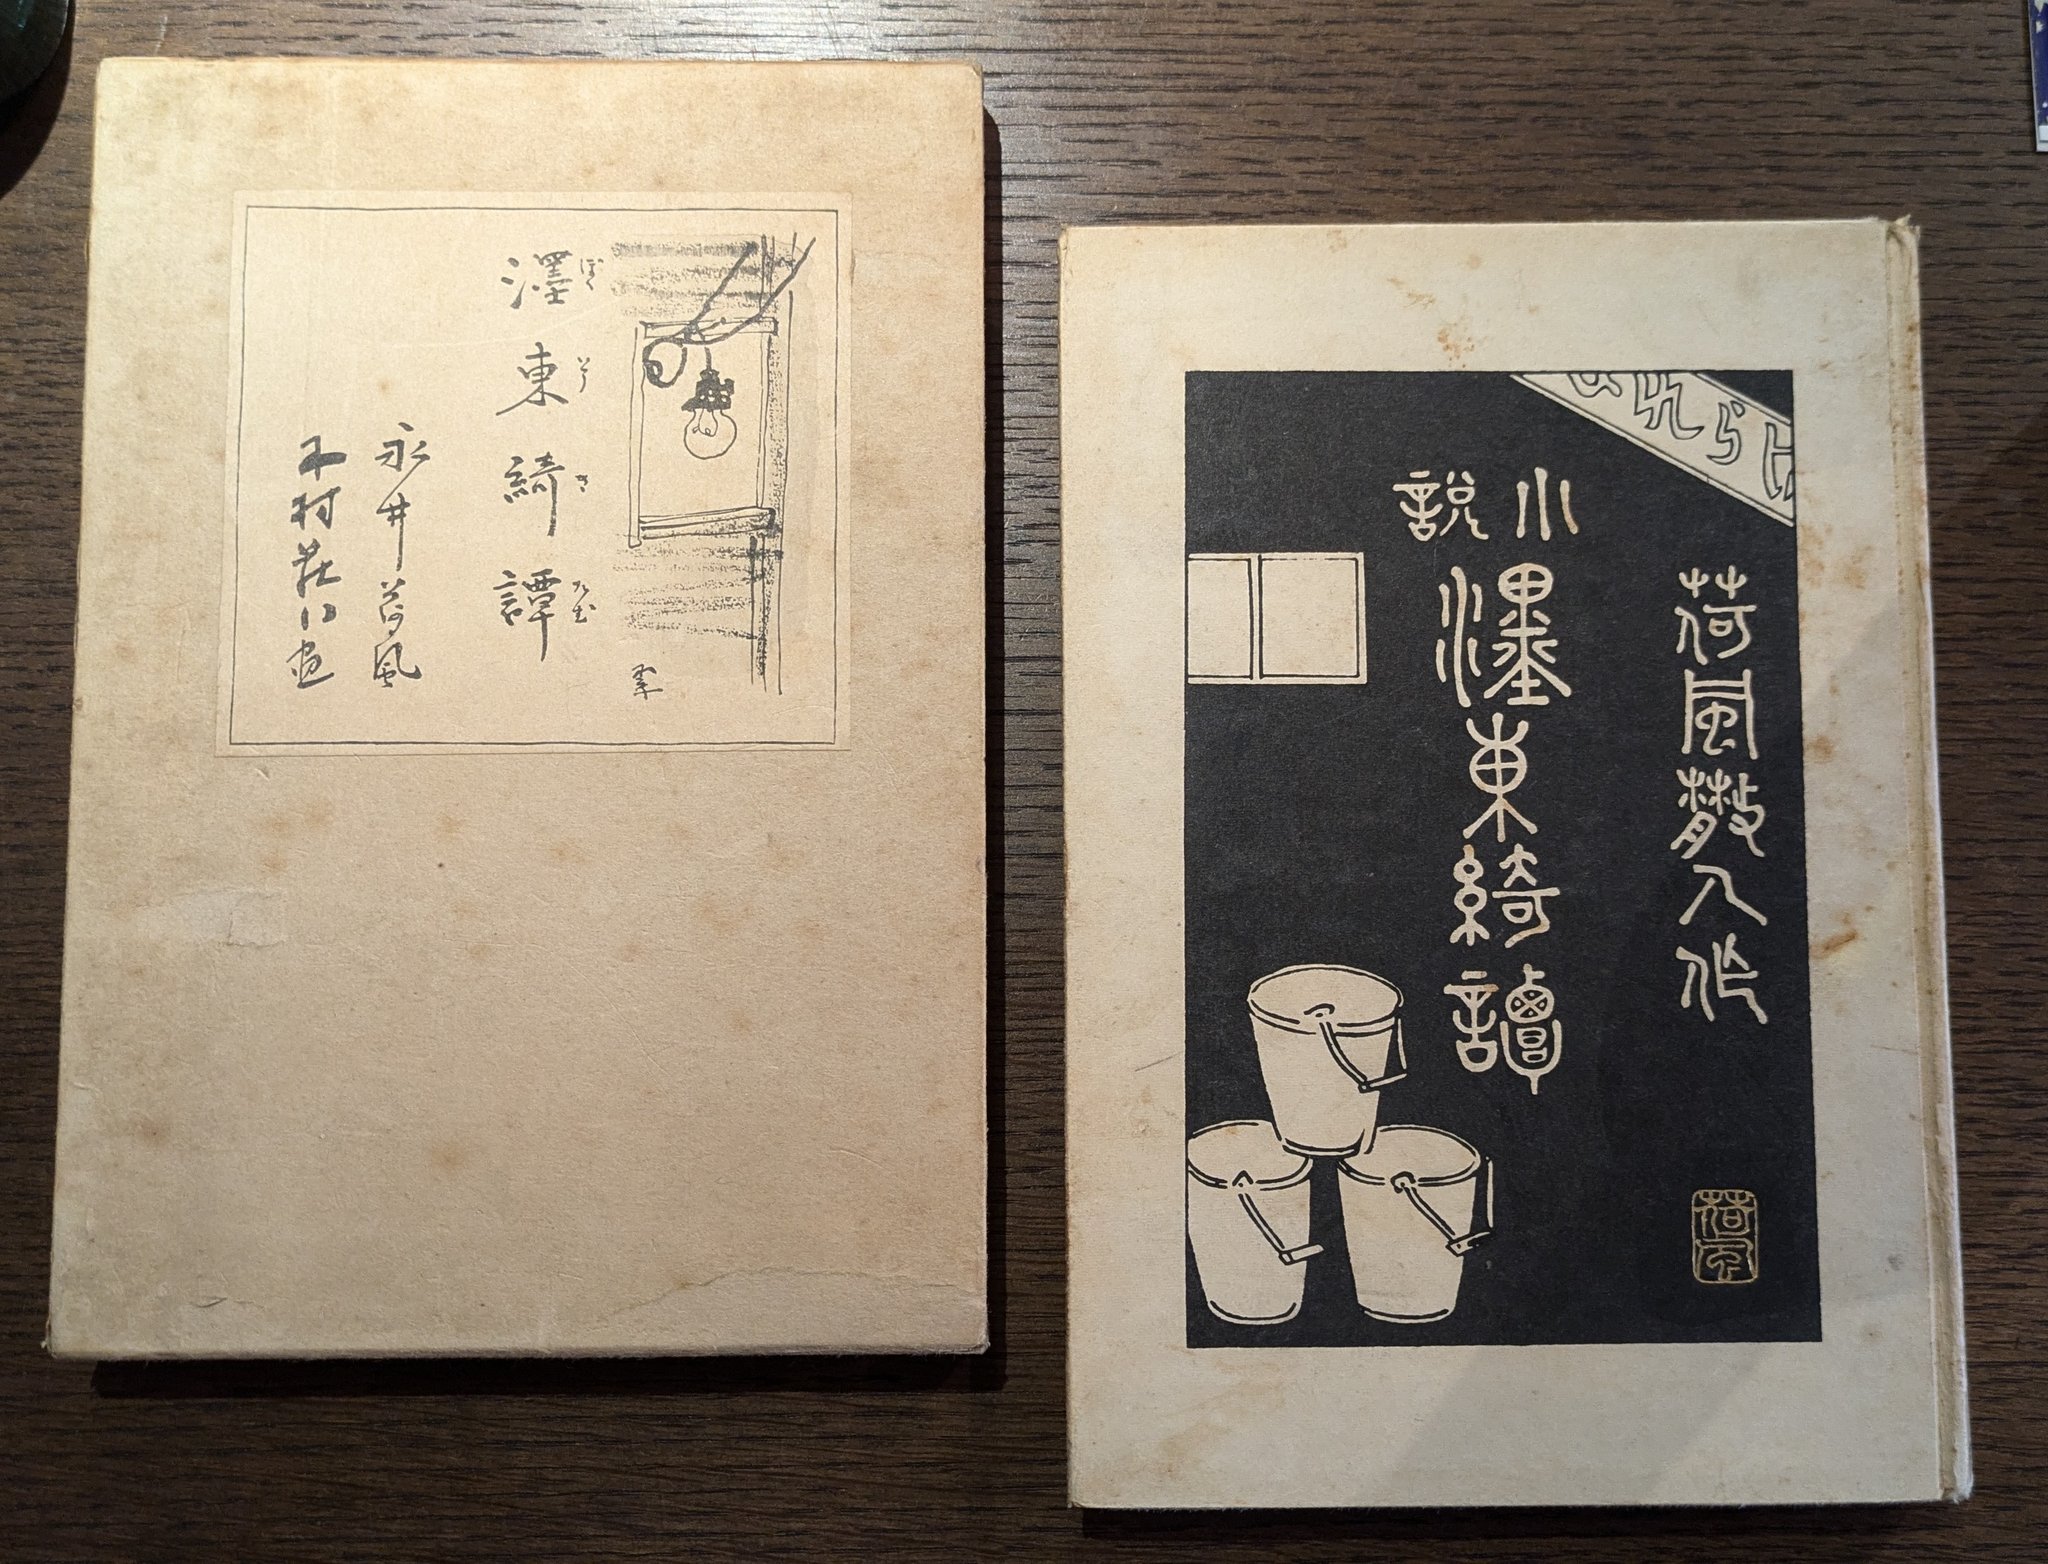 濹東綺譚
ぼくとうき
永井荷風
木村荘八画
荷風散人作
小説
濹東綺譚
荷風